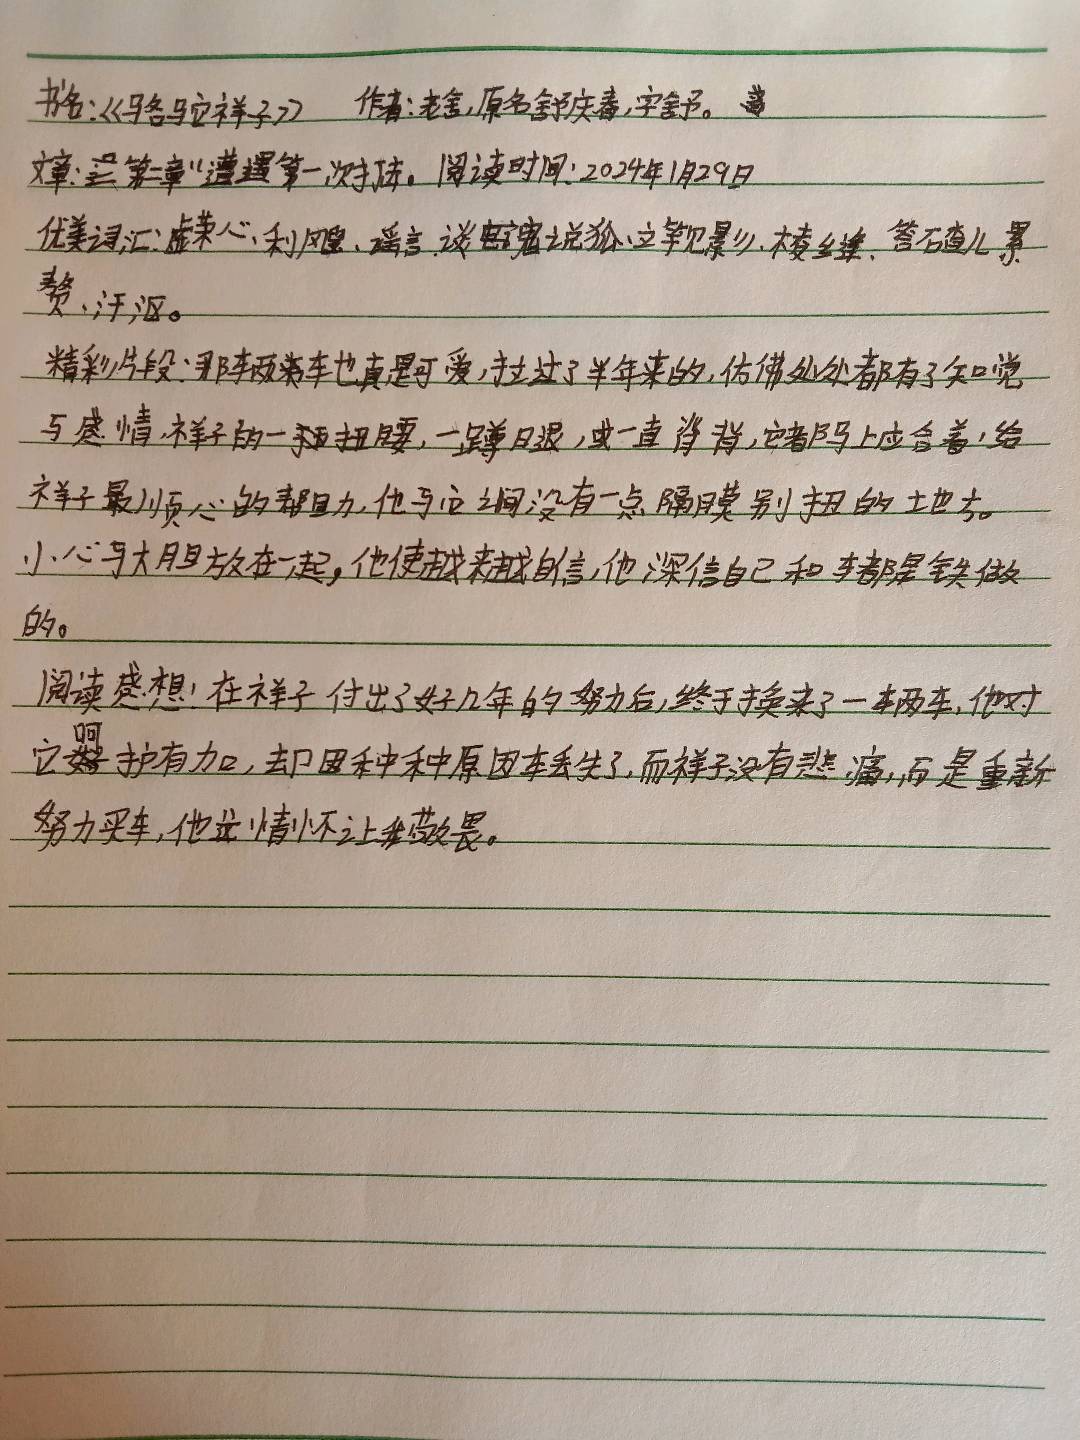 书名:《骆驼祥子》 作者:老舍,原名舒庆春,字舍予。
文章: 第二章“遭遇第一次打击。阅读时间:2024年1月29日
优美词汇:虚荣心、利飕、谣言、谈鬼说狐、立竿见影、棱缝、答碴儿、累
赘、汗沤。
精彩片段:那辆车也真是可爱,拉过了半年来的,仿佛处处都有了知觉
与感情,祥子的一扭腰,一蹲腿,或一直脊背,它都马上应合着,给
祥子最顺心的帮助,他与它之间没有一点隔膜别扭的地方。
小心与大胆放在一起,他便越来越自信,他深信自己和车都是铁做
的。
阅读感想:在祥子付出了好几年的努力后,终于换来了一辆车,他对
它呵护有加,却因种种原因车丢失了,而祥子没有悲痛,而是重新
努力买车,他这情怀让我敬畏。